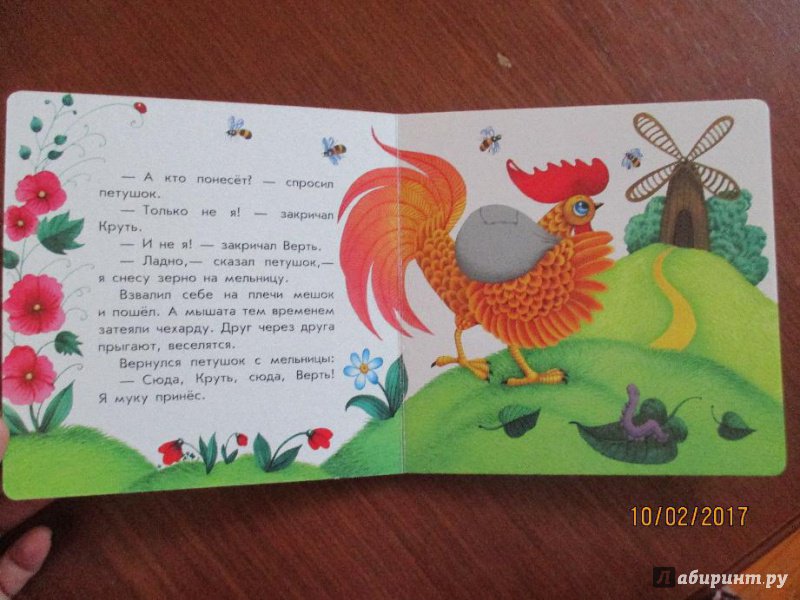 — А кто понесёт? — спросил
петушок.
— Только не я! — закричал
Круть.
— И не я! — закричал Верть.
— Ладно,— сказал петушок,—
я снесу зерно на мельницу.
Взвалил себе на плечи мешок
и пошёл. А мышата тем временем
затеяли чехарду. Друг через друга
прыгают, веселятся.
Вернулся петушок с мельницы:
— Сюда, Круть, сюда, Верть!
Я муку принёс.
10/02/2017
Лабиринт.ру